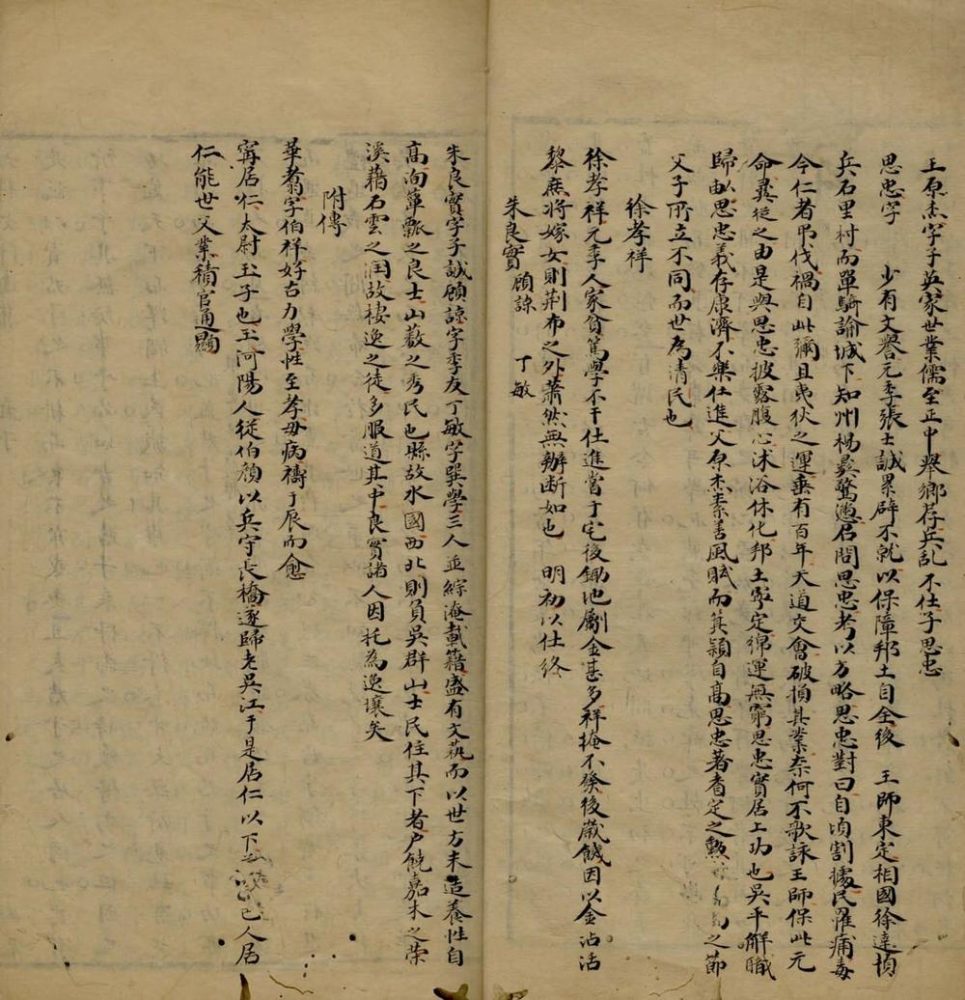 王原杰字子英家世業儒至正中舉鄉荐兵乱不仕子思忠
思忠字 少有文譽元季張士誠累辟不就以保障邦土自全後 王師東定相國徐達頓
兵石里村而單騎諭城下知州楊彞驚懣君問思忠考以方略思忠對曰自頃割據民罹痛毒
今仁者弔伐禍自此彌且夷狄之運垂有百年天道交會破損其業柰何不歌詠王師保此元
命彞從之由是與思忠披露腹心沐浴休化邦土寧定綿運無窮思忠實居上功也吳平解職
歸由以思忠義存康濟不樂仕進父原杰素善風賦而箕潁自高思忠著耆定之勲 之節
父子所立不同而世為清民也
徐孝祥
徐孝祥元季人家貧篤學不干仕進嘗于宅後鋤地劚金甚多祥掩不發後歲饑因以金沾活
黎庶將嫁女則荆布之外蕭然無辦断如也 明初以仕終
朱良實 顧諒 丁敏
朱良實字子誠顧諒字季友丁敏字巽學三人並綜淹載籍盛有文蓺而以世方未造養性自
高洵簞瓢之良士山藪之秀民也縣故水國西北則負吳群山士民住其下者户饒嘉木之荣
溪藉石雲之潤故棲逸之徒多服道其中良實諸人因托為逸壤矣
附傳
華翥字伯祥好古力學性至孝母病禱于辰而愈
甯居仁太尉玉子也玉河陽人従伯顔以兵守長橋遂歸老吳江于是居仁以下 邑人居
仁能世父業積官通顯